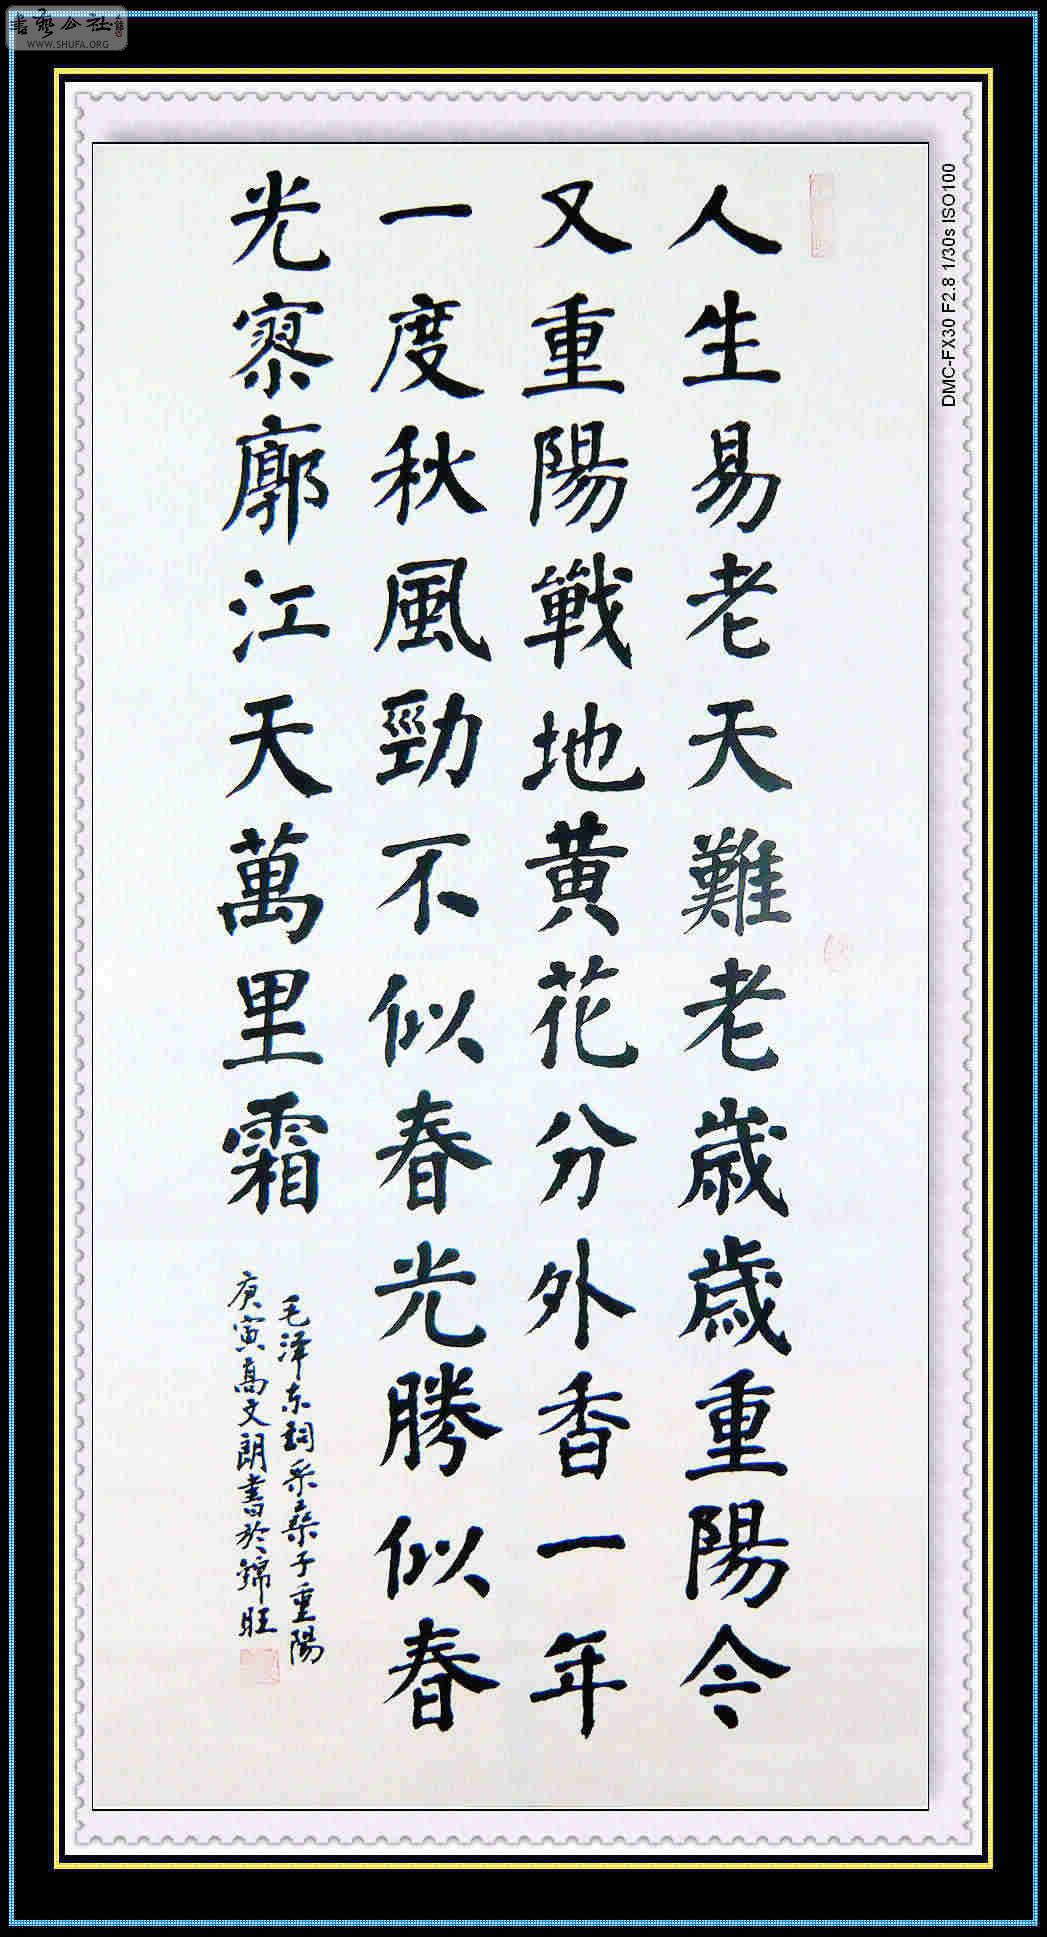 書藝公社
WWW.SHUFA.ORG
DMC-FX30 F2.8 1/30s ISO100
人生易老天難老歲歲重陽今
又重陽戰地黃花分外香一年
一度秋風勁不似春光勝似春
光寥廓江天萬里霜
毛泽东詞采桑子重陽
庚寅高文朗書於錦旺